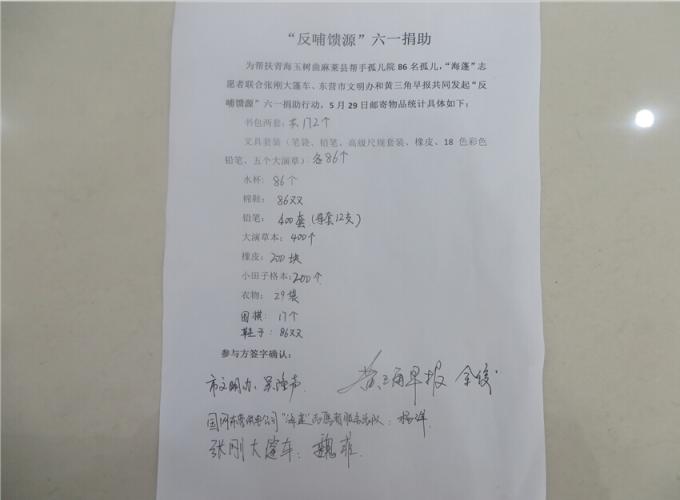 “反哺馈源”六一捐助
为帮扶青海玉树曲麻莱县帮手孤儿院86名孤儿，“海蓬”志
愿者联合张刚大篷车、东营市文明办和黄三角早报共同发起“反
哺馈源”六一捐助行动，5月29日邮寄物品统计具体如下：
书包两套：共172个
文具套装（笔袋、铅笔、高级尺规套装、橡皮、18色彩色
铅笔、五个大演草）各86个
水杯：86个
棉鞋：86双
铅笔：400套（每套12支）
大演草本：400个
橡皮：200块
小田子格本：200个
衣物：29袋
围棋：17个
鞋子：86双
参与方签字确认：
市文明办：
黄三角早报 余俊
国网东营供电公司“海蓬”志愿者服务队：杨洋
张刚大篷车：魏雄